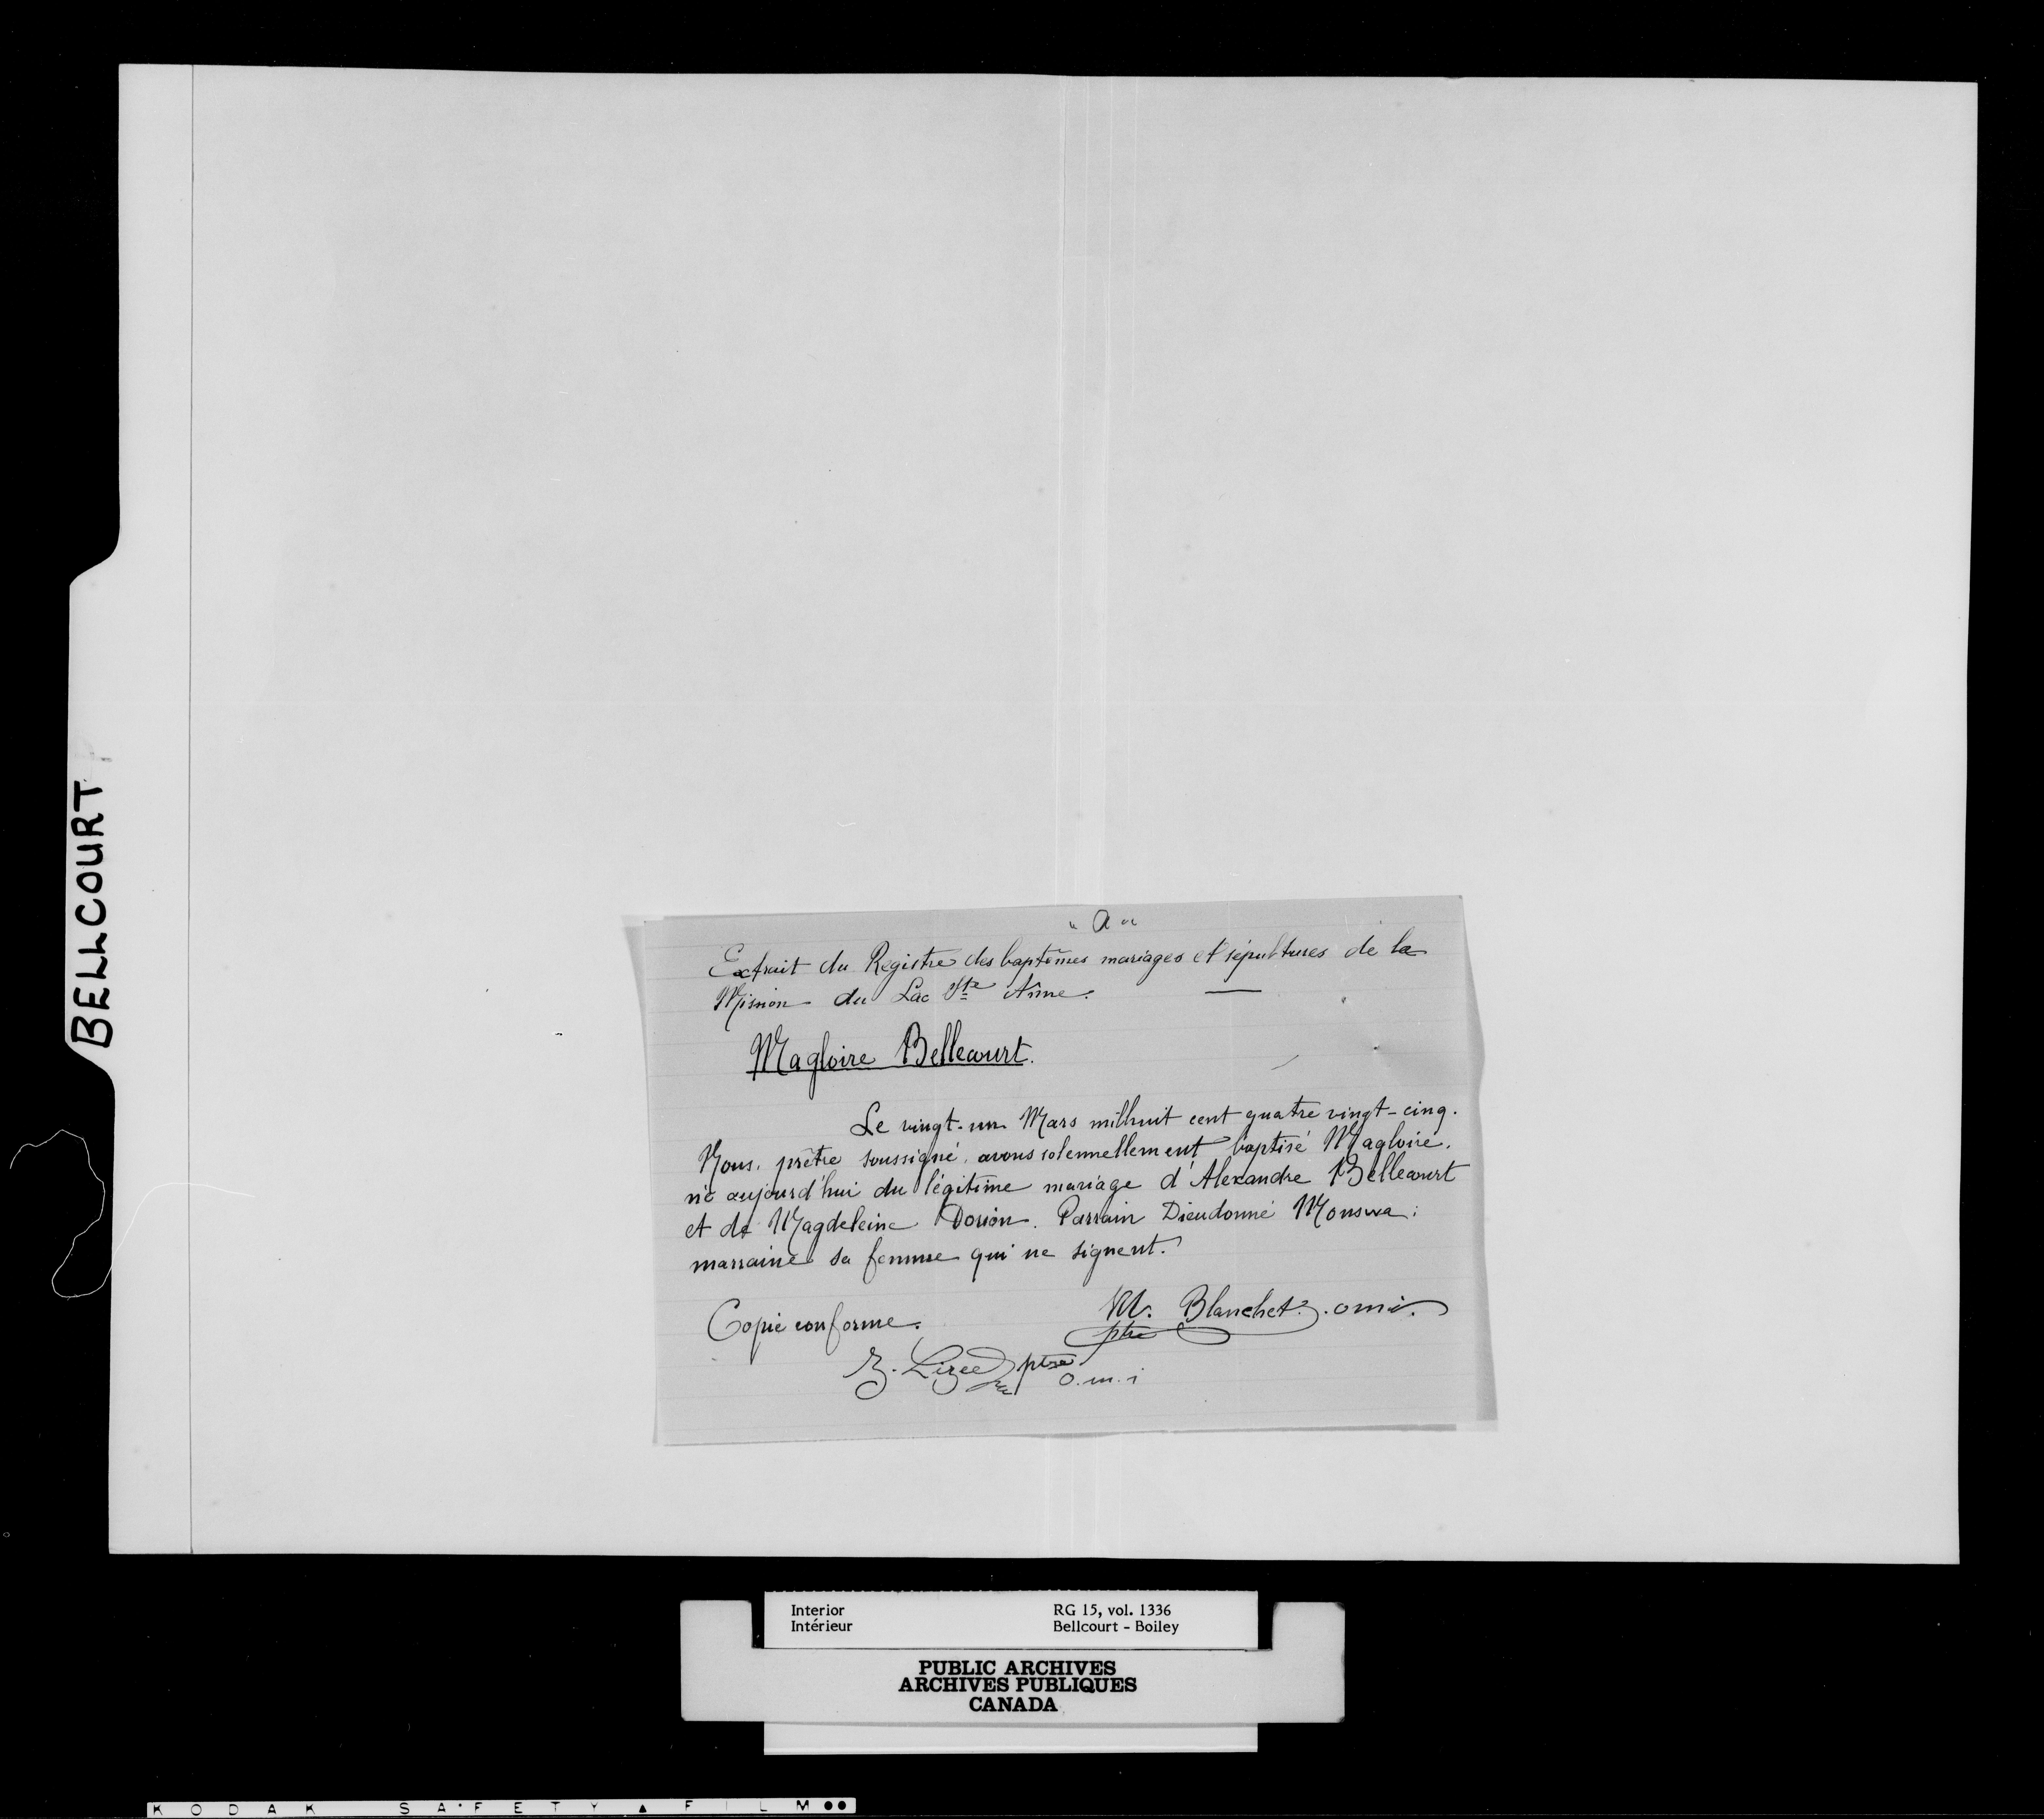 BELLCOURT
"a"
Extrait du Registre des baptêmes mariages et sépultures de la
Mission du Lac Ste Anne.
Magloire Bellecourt.
Le vingt-un Mars mil huit cent quatre vingt-cinq.
Nous, prêtre soussigné, avons solennellement baptisé Magloire.
né aujourd'hui du légitime mariage d'Alexandre Bellecourt
et de Magdeleine Dorion. Parrain Dieudonné Monswa;
marraine sa femme qui ne signent.
M. Blanchet. omi.
ptre
Copie conforme.
Z. Lizée ptre
o.m.i
Interior RG 15, vol. 1336
Intérieur Bellcourt - Boiley
PUBLIC ARCHIVES
ARCHIVES PUBLIQUES
CANADA
KODAK SAFETY FILM